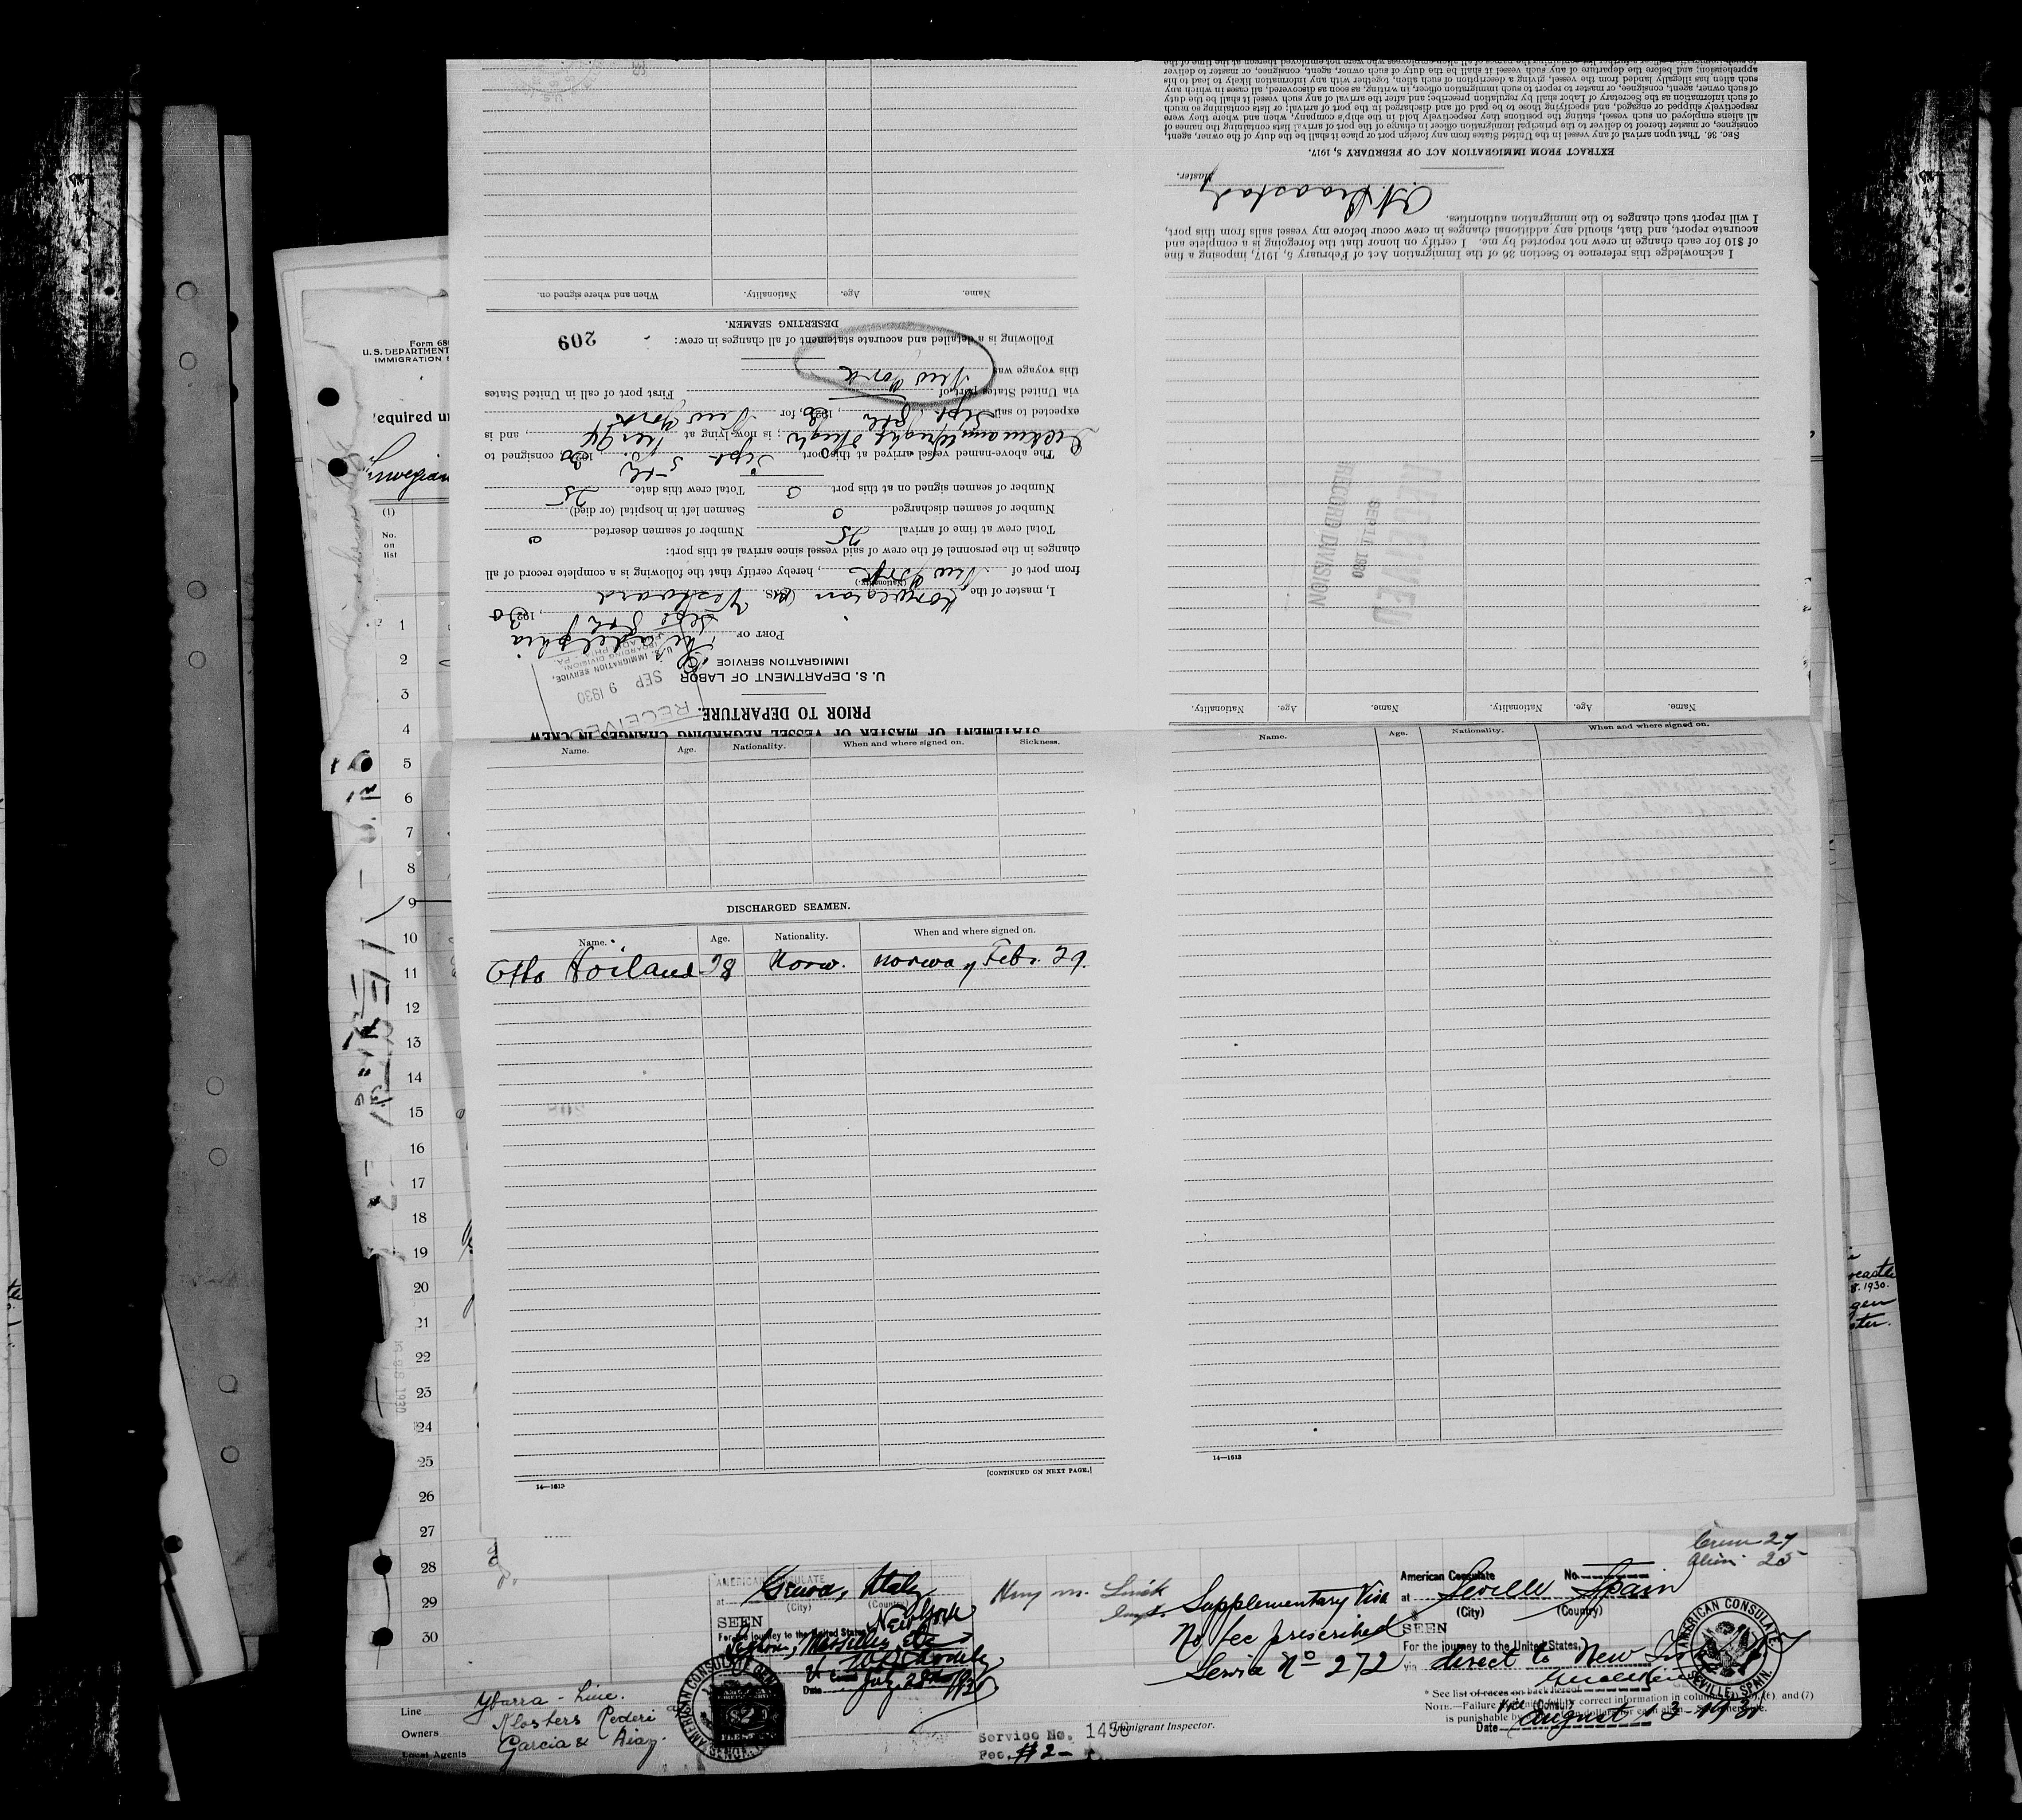 STATEMENT OF MASTER OF VESSEL REGARDING CHANGES IN CREW
PRIOR TO DEPARTURE.
U. S. DEPARTMENT OF LABOR
IMMIGRATION SERVICE
RECEIVED
SEP 9 1930
U. S. IMMIGRATION SERVICE,
BOARDING DIVISION
PHILA., PA.
PORT OF Philadelphia
Sept 8th, 1920 30
I, master of the Norwegian (M/S) Vestvard
(Nationality.)
from port of New York, hereby certify that the following is a complete record of all
changes in the personnel of the crew of said vessel since arrival at this port:
Total crew at time of arrival 25 Number of seamen deserted 0
Number of seamen discharged 0 Seamen left in hospital (or died)
Number of seamen signed on at this port 0 Total crew this date 25
The above-named vessel arrived at this port Sept. 5th, 1930 consigned to
; is now lying at Pier 94, and is
expected to sail Sept. 8th, 1930, for New York
via United States port of First port of call in United States
this voyage was New York
Following is a detailed and accurate statement of all changes in crew:
209
DESERTING SEAMEN.
Name. Age. Nationality. When and where signed on.
Name. Age. Nationality. Name. Age. Nationality.
RECEIVED
SEP 11 1930
RECORD DIVISION
I acknowledge this reference to Section 36 of the Immigration Act of February 5, 1917, imposing a fine
of $10 for each change in crew not reported by me. I certify on honor that the foregoing is a complete and
accurate report, and that, should any additional changes in crew occur before my vessel sails from this port,
I will report such changes to the immigration authorities.
Master.
EXTRACT FROM IMMIGRATION ACT OF FEBRUARY 5, 1917.
Sec. 36. That upon arrival of any vessel in the United States from any foreign port or place it shall be the duty of the owner, agent,
consignee, or master thereof to deliver to the principal immigration officer in charge of the port of arrival lists containing the names of
all aliens employed on such vessel, stating the positions they respectively hold in the ship's company, when and where they were
respectively shipped or engaged, and specifying those to be paid off and discharged in the port of arrival; or lists containing so much
of such information as the Secretary of Labor shall by regulation prescribe; and after the arrival of any such vessel it shall be the duty
of such owner, agent, consignee, or master to report to such immigration officer, in writing, as soon as discovered, all cases in which any
such alien has illegally landed from the vessel, giving a description of such alien, together with any information likely to lead to his
apprehension; and before the departure of any such vessel it shall be the duty of such owner, agent, consignee, or master to deliver
Form 68
U. S. DEPARTMENT
IMMIGRATION
equired u
Norwegian
(1)
No.
on
list
1
2
3
4
5
6
7
8
9
10
11
12
13
14
15
16
17
18
19
20
21
22
23
24
25
26
27
28
29
30
Name. Age. Nationality. When and where signed on. Sickness.
DISCHARGED SEAMEN.
Name. Age. Nationality. When and where signed on.
Otto Hoiland 28 Norw. Norway Febr. 29.
[CONTINUED ON NEXT PAGE.]
14—1613
Name. Age. Nationality. When and where signed on.
14—1613
8. 1930.
Crew 27
Alien 25
AMERICAN CONSULATE
at Genoa, Italy
(City) (Country)
SEEN New York
For the journey to the United States
Date July 23rd 1930
Supplementary Visa
No fee prescribed
Service No 272
American Consulate No.
at Seville Spain
(City) (Country)
SEEN
For the journey to the United States,
via direct to New York
AMERICAN CONSULATE
SEVILLE, SPAIN.
* See list of races on back hereof
(Consul)
Date August 13-1930
Immigrant Inspector.
Service No. 1456
Fee. $2-
Line Ybarra - Line.
Owners Klosters Rederi
Local Agents Garcia & Diaz.